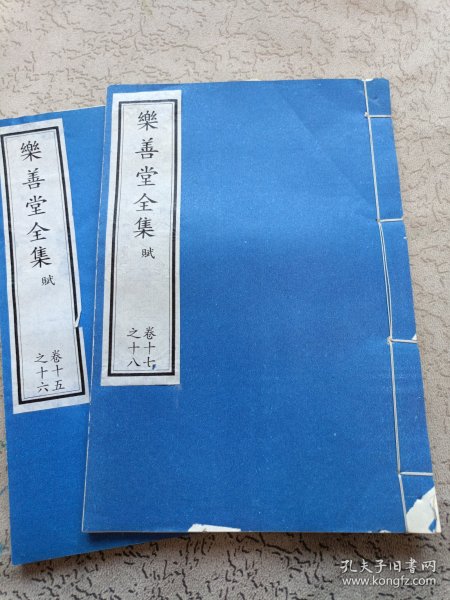 樂善堂全集 賦
卷十五
之十六
樂善堂全集 賦
卷十七
之十八
孔夫子旧书网
www.kongfz.com